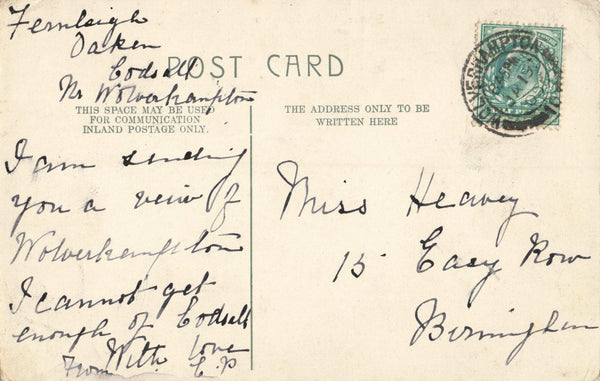 Fernleigh
Oaken
Codsall
Nr Wolverhampton
POST CARD
THIS SPACE MAY BE USED
FOR COMMUNICATION
INLAND POSTAGE ONLY.
THE ADDRESS ONLY TO BE
WRITTEN HERE
WOLVERHAMPTON
I am sending
you a view of
Wolverhampton
I cannot get
enough of Codsall
With love
From E.P
Miss Heavey
15 Easy Row
Birmingham